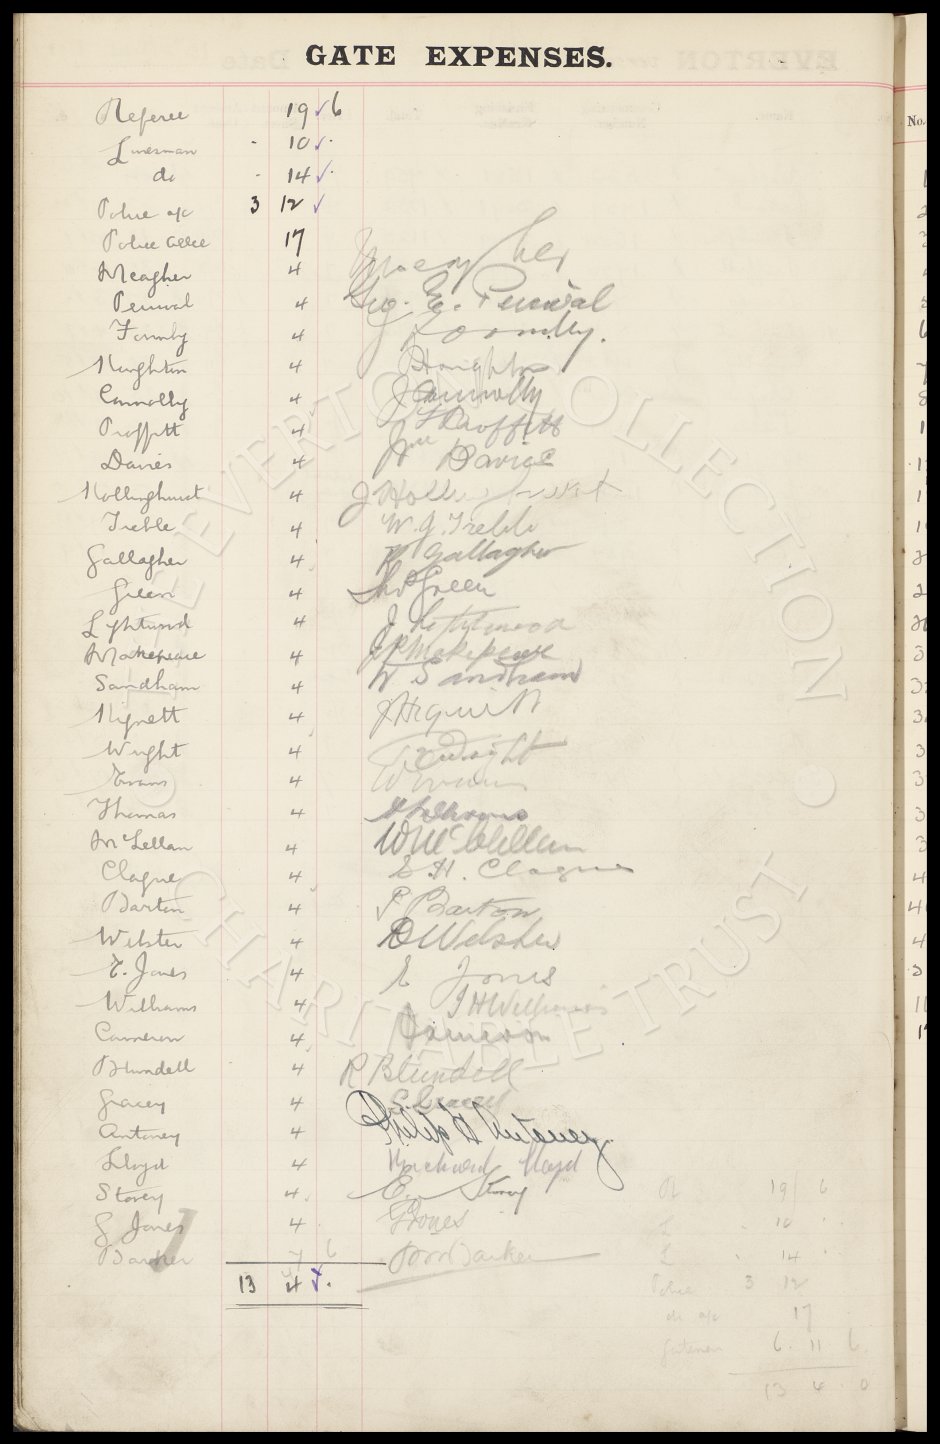 GATE EXPENSES.
Referee 19 6
Linesman - 10 -
do - 14 -
Police a/c 3 12
Police 17
Meagher 4
Percival 4 Geo. E. Percival
Formby 4 Formby.
Houghton 4 Houghton
Connolly 4 J Connolly
Proffitt 4 Proffitt
Davies 4 Wm Davies
Hollinghurst 4 J Hollinghurst
Treble 4 W. J. Treble
Gallagher 4 Gallagher
Green 4 Thos Green
Lightwood 4 J Lightwood
Makepeace 4 Makepeace
Sandham 4 W Sandham
Hignett 4 J Hignett
Wright 4 Wright
Evans 4 Evans
Thomas 4 Thomas
McLellan 4 W McClellan
Clague 4 E H. Clague
Barton 4 P Barton
Webster 4 Webster
E. Jones 4 E Jones
Williams 4 J H Williams
Cameron 4 Cameron
Blundell 4 R Blundell
Gracey 4 E. Gracey
Antoney 4 Philip H Antoney
Lloyd 4 Lloyd
Storey 4 E. Storey
G Jones 4 G Jones
Barker 7 6 Barker
13 4 -
R 19 6
L - 10 -
L - 14 -
Police 3 12
do a/c 17
Gatemen 6 11 6
13 4 0
No.
EVERTON COLLECTION
CHARITABLE TRUST